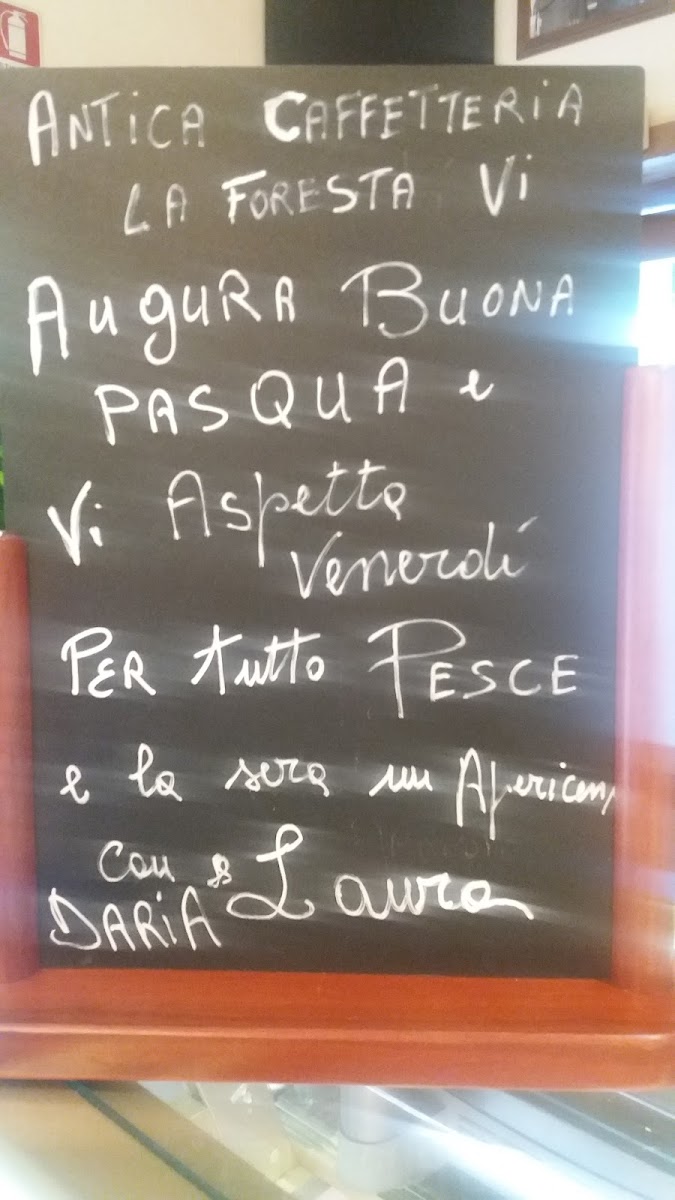 ANTiCA CAFFETTERiA
LA FORESTA Vi
AuguRA BUONA
PASQUA e
Vi Aspetta
Venerdí
PER tutto PESCE
e la sera un Apericena
con &
DARiA Laura